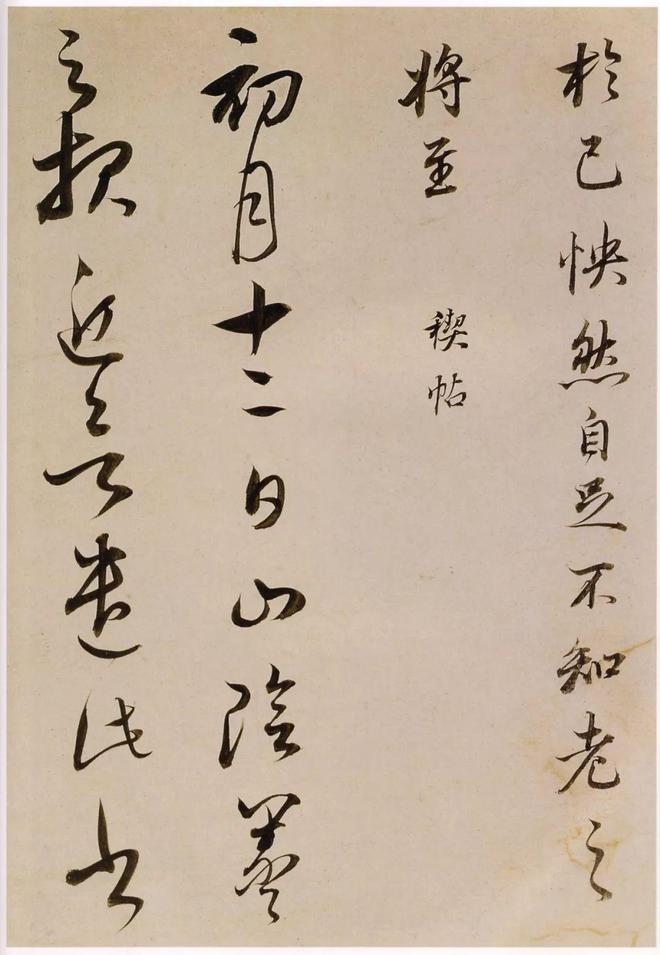 於己怏然自足不知老之
將至 禊帖
初月十二日山陰羲
之報近欲遣此書